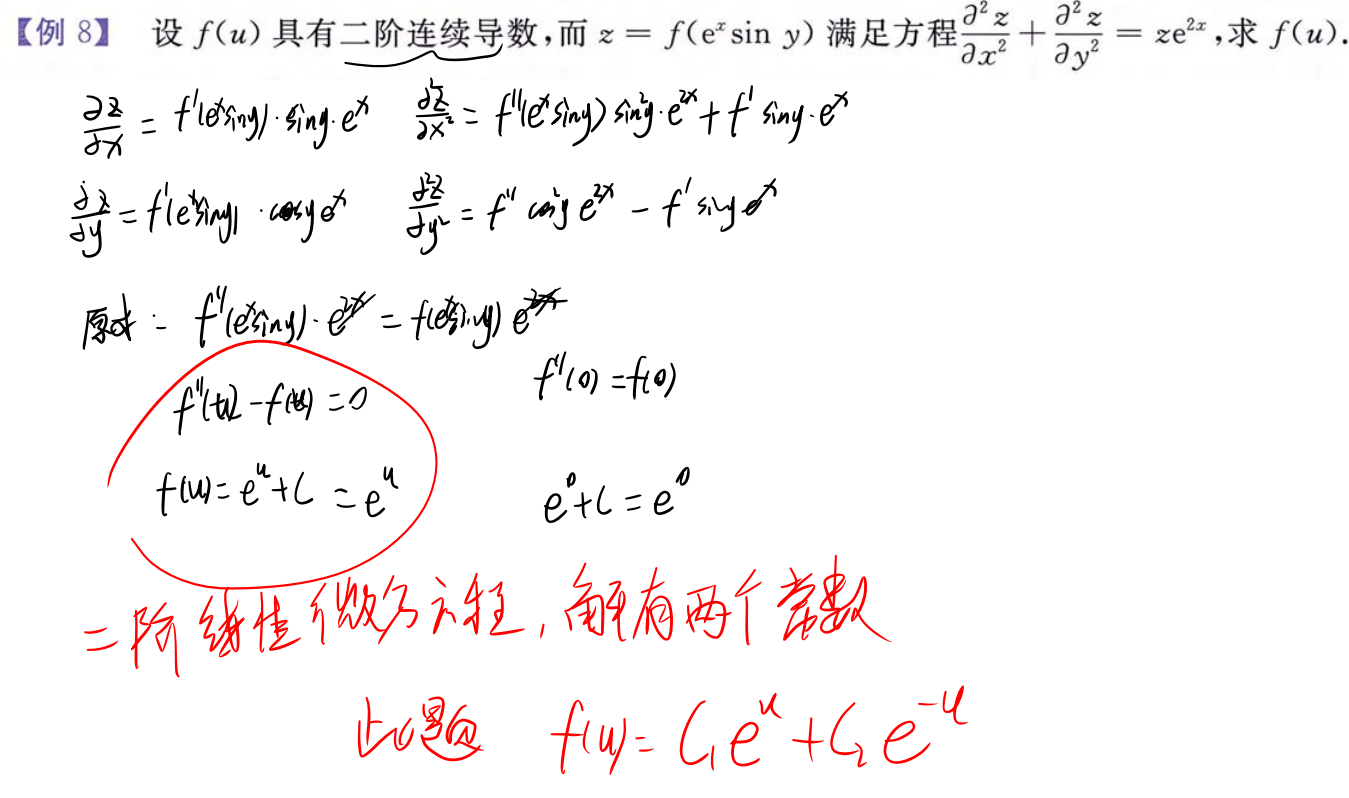 【例 8】 设 f(u) 具有二阶连续导数,而 z = f(eˣ sin y) 满足方程 ∂²z/∂x² + ∂²z/∂y² = ze²ˣ,求 f(u).
∂z/∂x = f'(eˣsiny)·siny·eˣ ∂²z/∂x² = f''(eˣsiny)sin²y·e²ˣ + f' siny·eˣ
∂z/∂y = f'(eˣsiny)·cosy eˣ ∂²z/∂y² = f'' cos²y e²ˣ - f' siny eˣ
原式: f''(eˣsiny)·e²ˣ = f(eˣsiny) e²ˣ
f''(0) = f(0)
f''(u) - f(u) = 0
f(u) = eᵘ + C = eᵘ
e⁰ + C = e⁰
二阶线性微分方程,解有两个常数
此题 f(u) = C₁eᵘ + C₂e⁻ᵘ